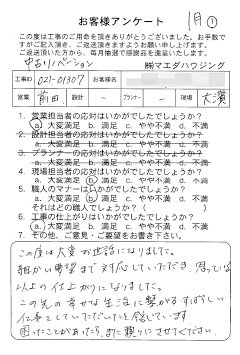 お客様アンケート
1月①
この度は工事のご用命を頂きありがとうございました。お手数で
すがご記入頂き、ご返送頂きますようお願い申し上げます。
ご返送頂いた方から、毎月抽選で感謝品を進呈いたします。
中古リノベーション
㈱マエダハウジング
工事NO 021-01307 お客様名
営業 前田 設計 プランナー － 現場 大濱
1. 営業担当者の応対はいかがでしたでしょうか?
a. 大変満足 b. 満足 c. やや不満 d. 不満
2. 設計担当者の応対はいかがでしたでしょうか?
a. 大変満足 b. 満足 c. やや不満 d. 不満
3. プランナーの応対はいかがでしたでしょうか?
a. 大変満足 b. 満足 c. やや不満 d. 不満
4. 現場担当者の応対はいかがでしたでしょうか?
a. 大変満足 b. 満足 c. やや不満 d. 不満
5. 職人のマナーはいかがでしたでしょうか?
a. 大変満足 b. 満足 c. やや不満 d. 不満
それはどの職人でしょうか?( )
6. 工事の仕上がりはいかがでしたでしょうか?
a. 大変満足 b. 満足 c. やや不満 d. 不満
7. その他、ご意見・ご要望をお書き下さい。
この度は大変お世話になりました。
細かい要望まで対応していただき 思っている
以上の仕上がりになりました。
この先の幸せな生活に繋がるすばらしい
仕事をしていただいたと感じています
困ったことがあったら、また頼りにさせてください。